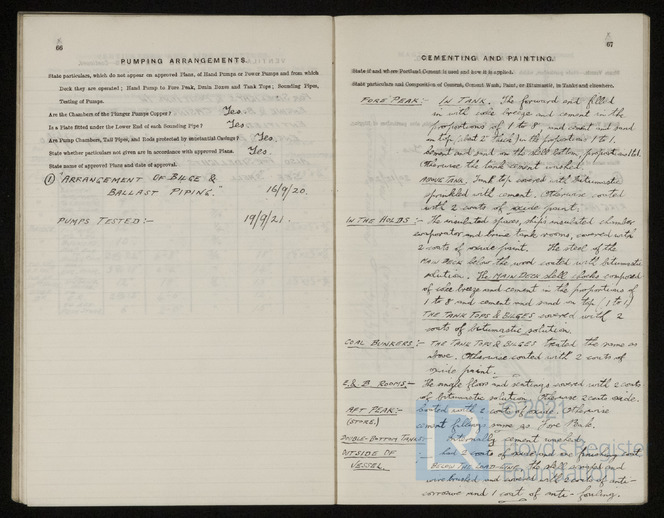 66
PUMPING ARRANGEMENTS.
State particulars, which do not appear on approved Plans, of Hand Pumps or Power Pumps and from which
Deck they are operated; Hand Pump to Fore Peak, Drain Doors and Tank Tops; Sounding Pipes,
Testing of Pumps.
Are the Chambers of the Plunger Pumps Copper? Yes.
Is a Plate fitted under the Lower End of each Sounding Pipe? Yes
Are Pump Chambers, Tail Pipes, and Rods protected by substantial Casings? Yes.
State whether particulars not given are in accordance with approved Plans. Yes.
State name of approved Plans and date of approval.
① "ARRANGEMENT OF BILGE &
BALLAST PIPING." 16/9/20.
PUMPS TESTED:- 19/9/21.
67
CEMENTING AND PAINTING.
State if and where Portland Cement is used and how it is applied.
State particulars and Composition of Cement, Cement Wash, Paint, or Bitumastic, in Tanks and elsewhere.
FORE PEAK:- IN TANK. The forward end filled
in with coke breeze and cement in the
proportions of 1 to 8 and cement and sand
on top, about 2" thick in the proportions 1 to 1.
Cement and sand on the shell bottom, proportions 1 to 1.
Otherwise the tank cement washed.
ABOVE TANK. Tank top covered with bitumastic
sprinkled with cement. Otherwise coated
with 2 coats of oxide paint.
IN THE HOLDS:- The insulated spaces, ships insulated chamber
evaporator and brine tank rooms, covered with
2 coats of oxide paint. The steel of the
MAIN DECK below the wood coated with bitumastic
solution. The MAIN DECK shell chocks composed
of coke breeze and cement in the proportions of
1 to 8 and cement and sand on top (1 to 1)
THE TANK TOPS & BILGES covered with 2
coats of bitumastic solution.
COAL BUNKERS:- THE TANK TOPS & BILGES treated the same as
above. Otherwise coated with 2 coats of
oxide paint.
E. & B. ROOMS- The single floors and seatings covered with 2 coats
of bitumastic solution. Otherwise 2 coats oxide.
AFT PEAK:- Coated with 2 coats of oxide. Otherwise
(STORE.) cement fillings same as Fore Peak.
DOUBLE-BOTTOM TANKS:- Internally cement washed.
OUTSIDE OF :- had 2 coats of oxide and one finishing coat
VESSEL. BELOW THE LOAD-LINE, the shell scraped and
wire brushed and covered with 2 coats of anti-
corrosive and 1 coat of anti-fouling.
© 2021
Lloyd's Register
Foundation